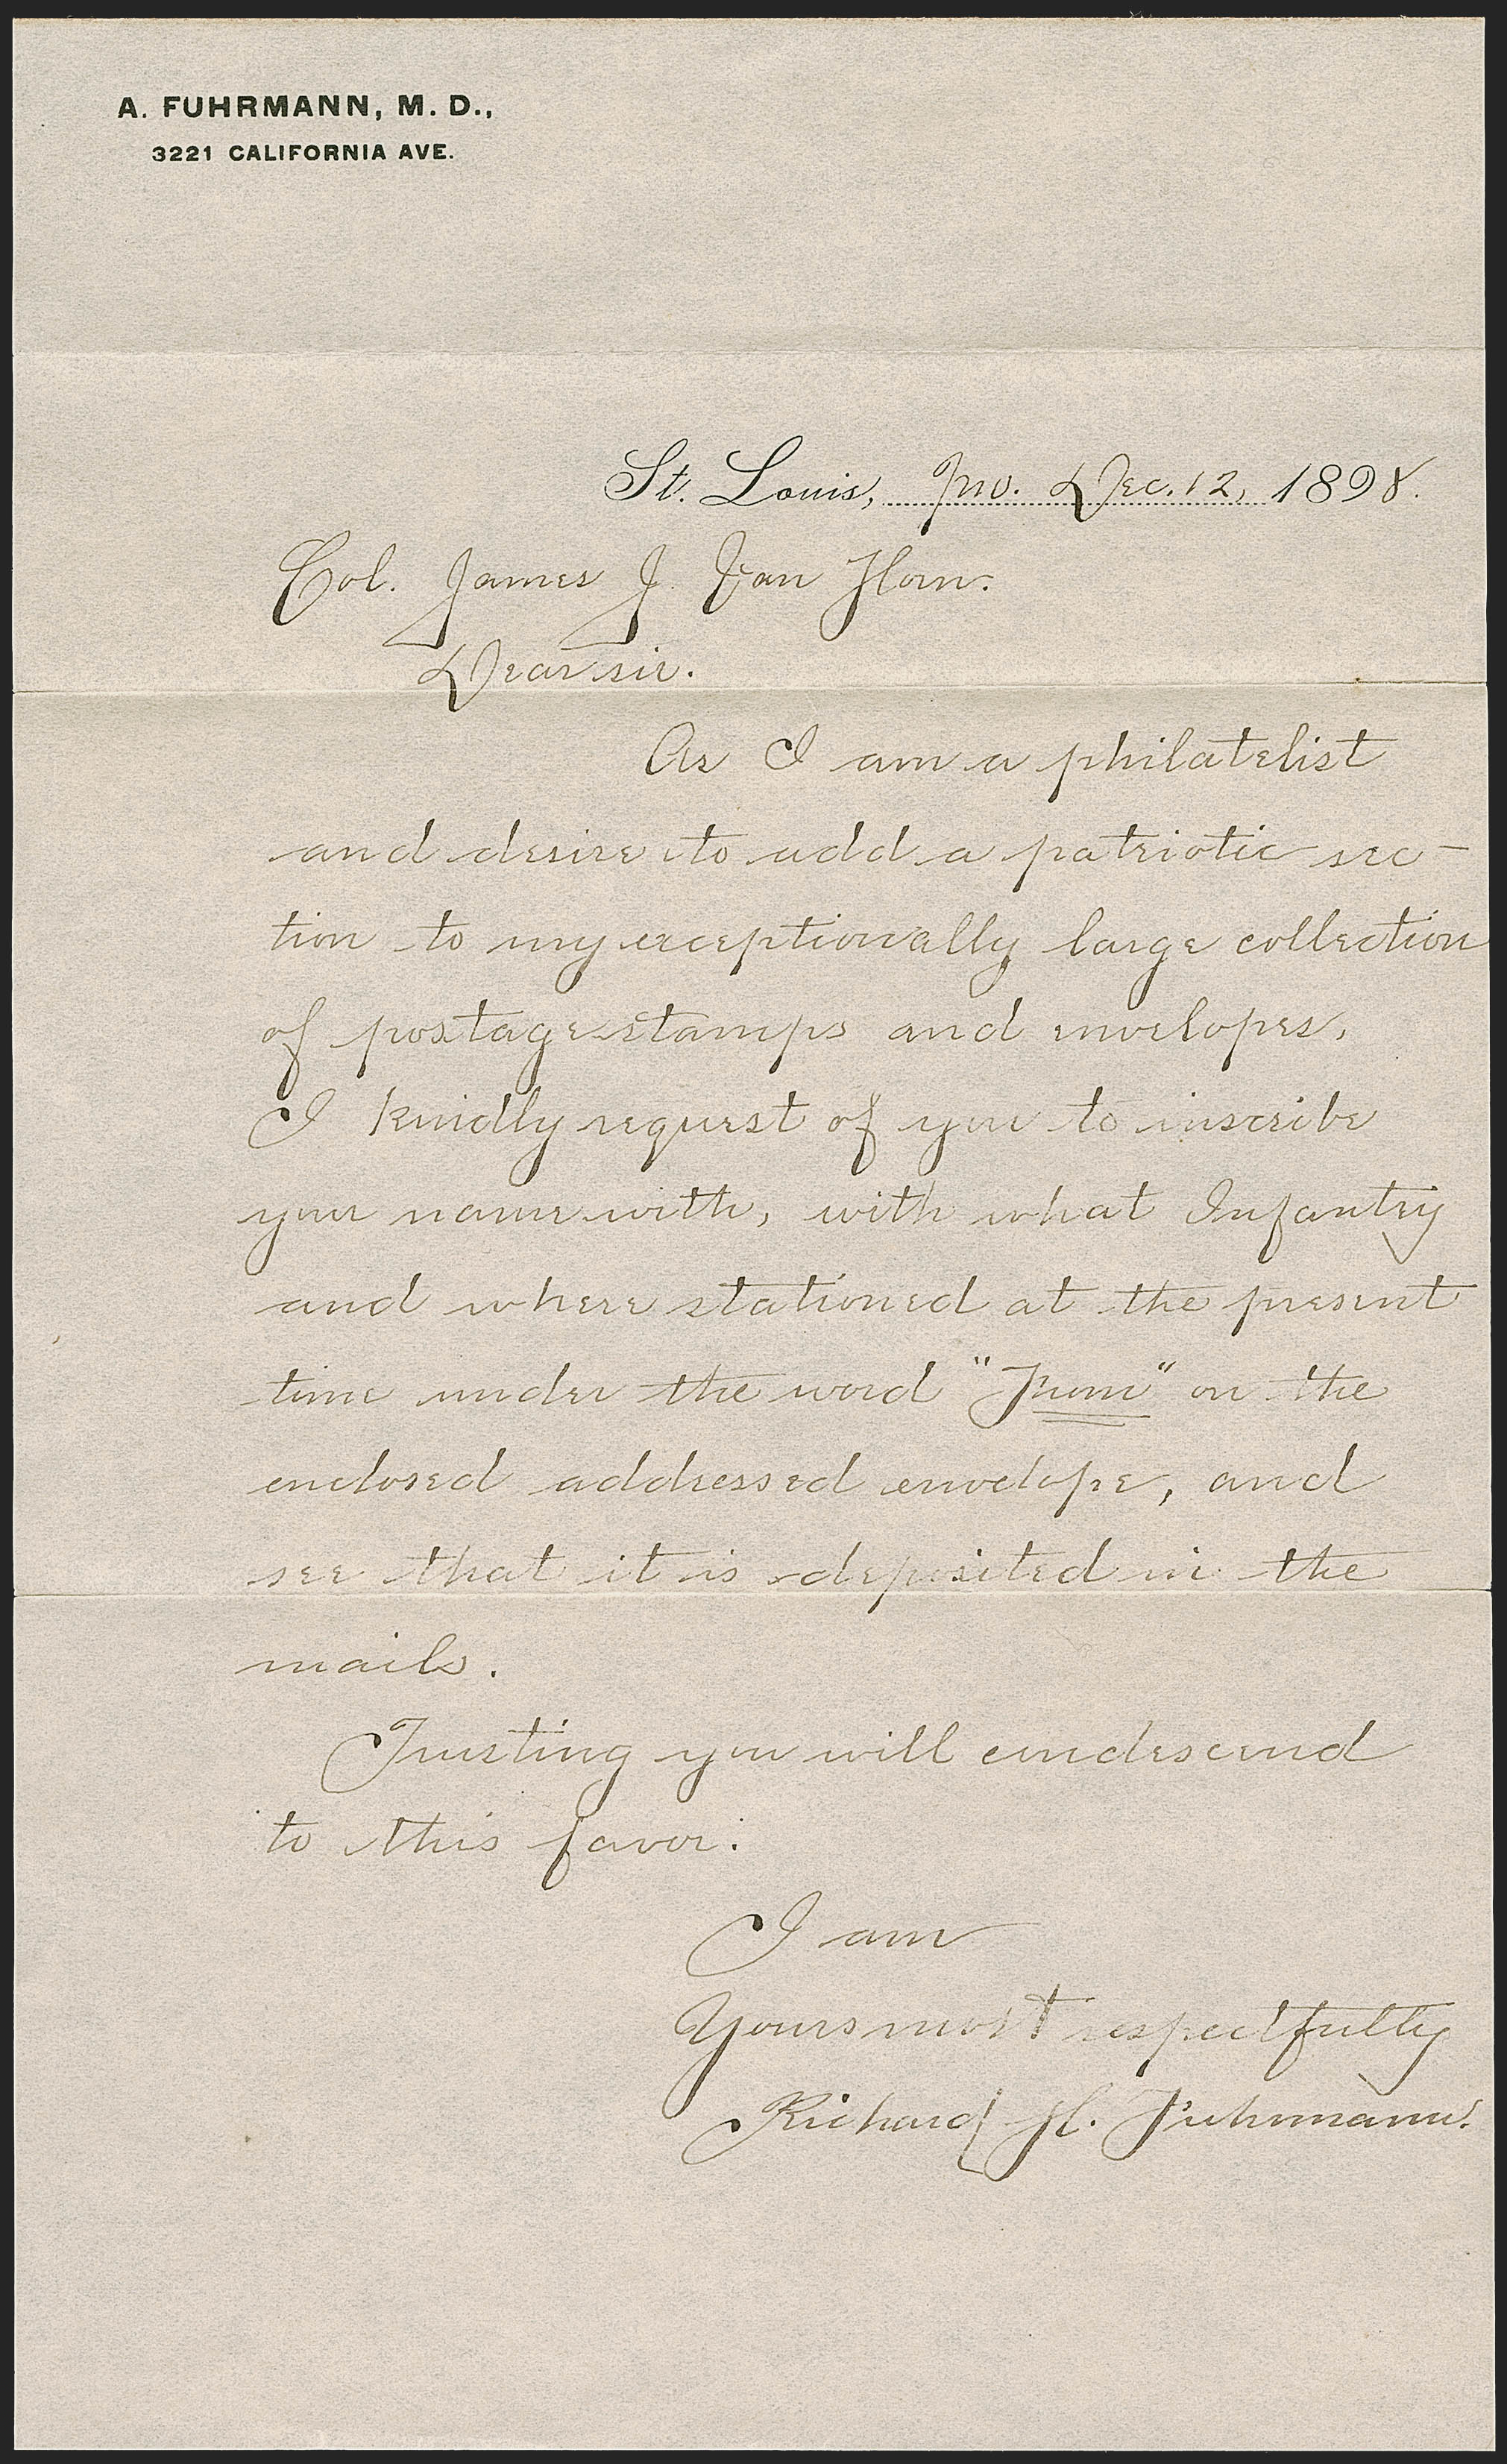 A. FUHRMANN, M. D.,
3221 CALIFORNIA AVE.
St. Louis, Mo. Dec. 12, 1898.
Col. James J. Van Horn.
Dear sir.
As I am a philatelist
and desire to add a patriotic sec-
tion to my exceptionally large collection
of postage stamps and envelopes,
I kindly request of you to inscribe
your name with, with what Infantry
and where stationed at the present
time under the word "From" on the
enclosed addressed envelope, and
see that it is deposited in the
mails.
Trusting you will condescend
to this favor.
I am
Yours most respectfully
Richard H. Fuhrmann.